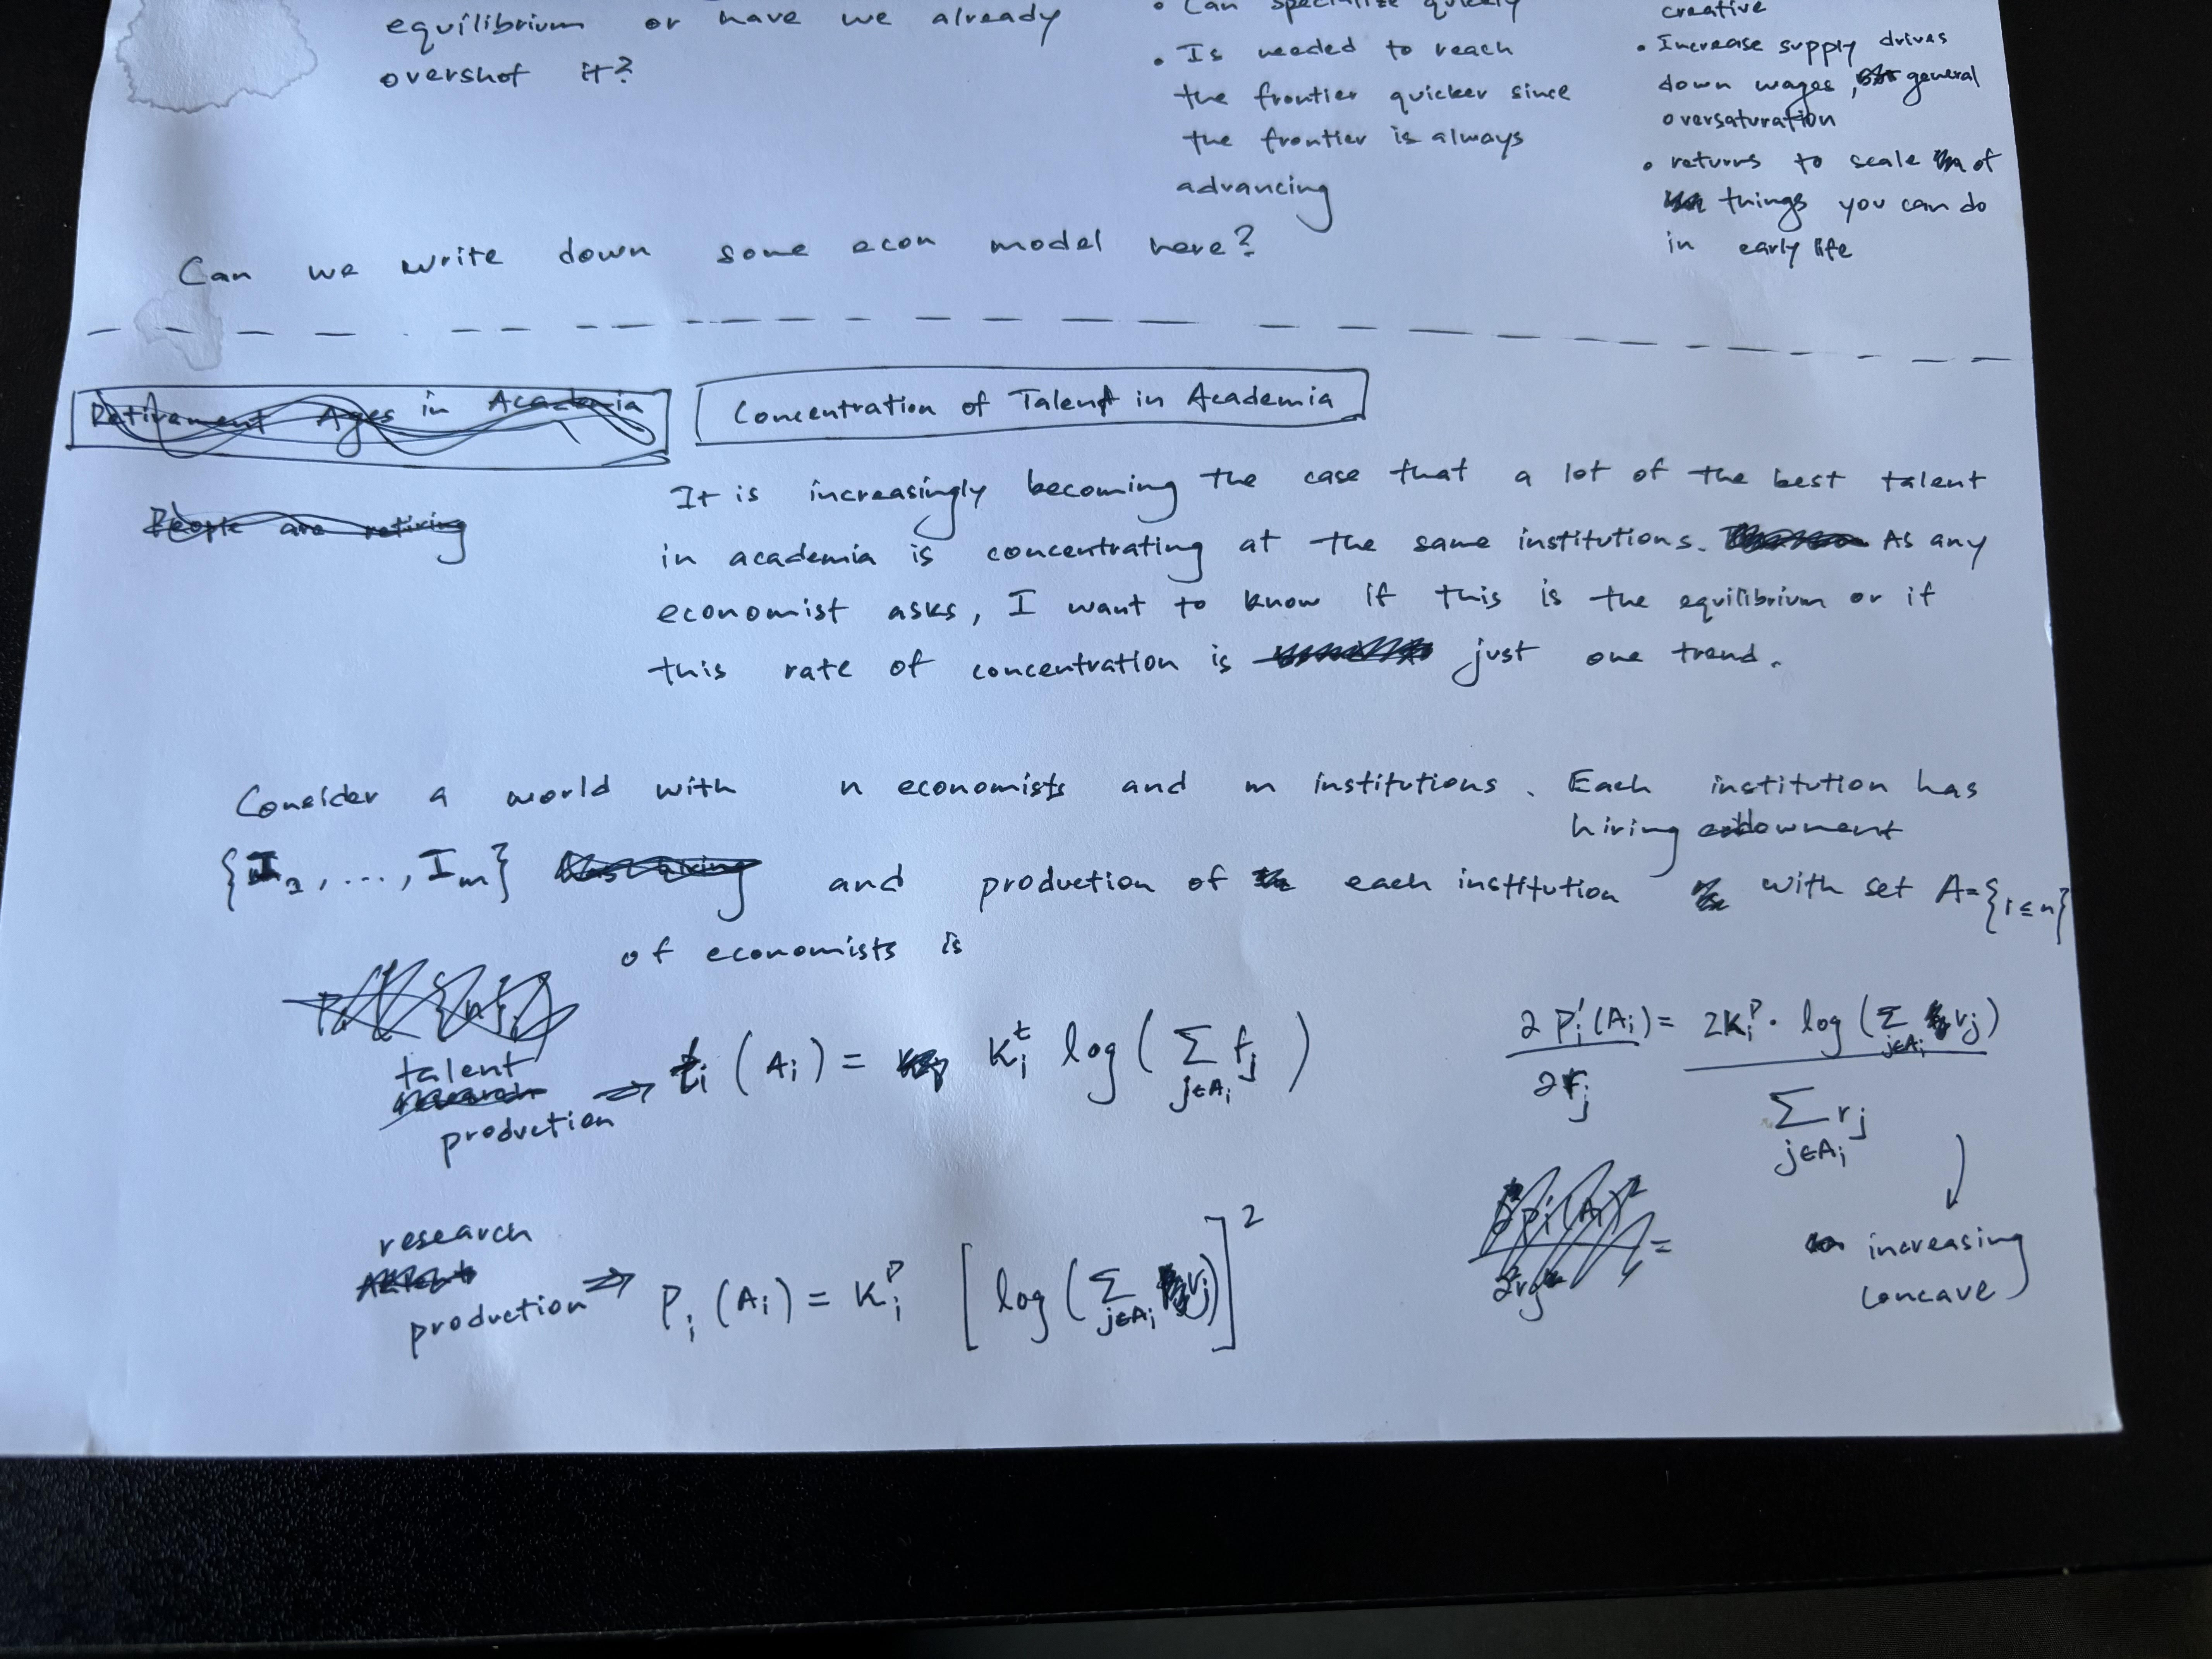 equilibrium or have we already
overshot it?
• Can specialize quickly
• Is needed to reach
the frontier quicker since
the frontier is always
advancing
creative
• Increase supply drives
down wages, general
oversaturation
• returns to scale of
things you can do
in early life
Can we write down some econ model here?
Retirement Ages in Academia
Concentration of Talent in Academia
People are retiring
It is increasingly becoming the case that a lot of the best talent
in academia is concentrating at the same institutions. As any
economist asks, I want to know if this is the equilibrium or if
this rate of concentration is just one trend.
Consider a world with n economists and m institutions. Each institution has
hiring endowment
{I₁, ..., Iₘ} and production of each institution with set A={i≤n}
of economists is
talent
production ⇒ tᵢ(Aᵢ) = Kᵢᵗ log(∑_{j∈Aᵢ} fⱼ)
research
production ⇒ Pᵢ(Aᵢ) = Kᵢᴾ [log(∑_{j∈Aᵢ} rⱼ)]²
∂Pᵢ'(Aᵢ)/∂rⱼ = 2Kᵢᴾ · log(∑_{j∈Aᵢ} rⱼ) / ∑_{j∈Aᵢ} rⱼ
increasing
concave